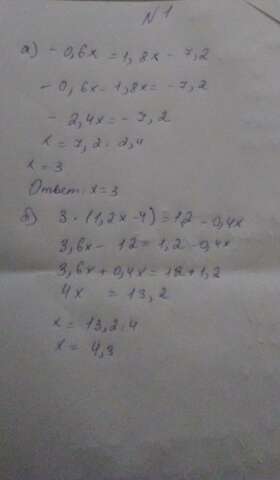 N 1
а) -0,6x = 1,8x - 7,2
-0,6x - 1,8x = -7,2
- 2,4x = -7,2
x = 7,2 : 2,4
x = 3
Ответ: x = 3
б) 3 · (1,2x - 4) = 1,2 - 0,4x
3,6x - 12 = 1,2 - 0,4x
3,6x + 0,4x = 12 + 1,2
4x = 13,2
x = 13,2 : 4
x = 4,3